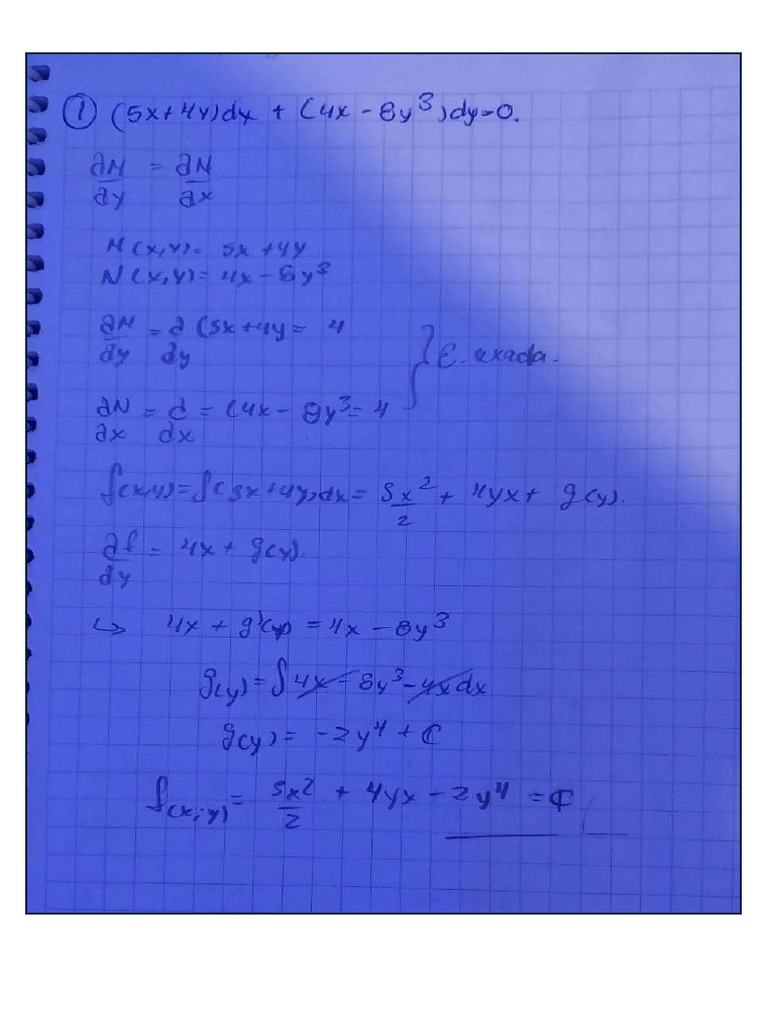 ① (5x+4y)dx + (4x - 8y³)dy=0.
∂M/∂y = ∂N/∂x
M(x,y)= 5x+4y
N(x,y)= 4x-8y³
∂M/∂y = ∂/∂y (5x+4y = 4
∂N/∂x = ∂/∂x = (4x - 8y³ = 4
} E. exacta.
f(x,y)=∫(5x+4y)dx = 5x²/2 + 4yx + g(y).
∂f/∂y = 4x + g(y)
↳ 4x + g'(y) = 4x - 8y³
g(y) = ∫ 4x - 8y³ - 4x dx
g(y) = -2y⁴ + C
f(x,y) = 5x²/2 + 4yx - 2y⁴ = C